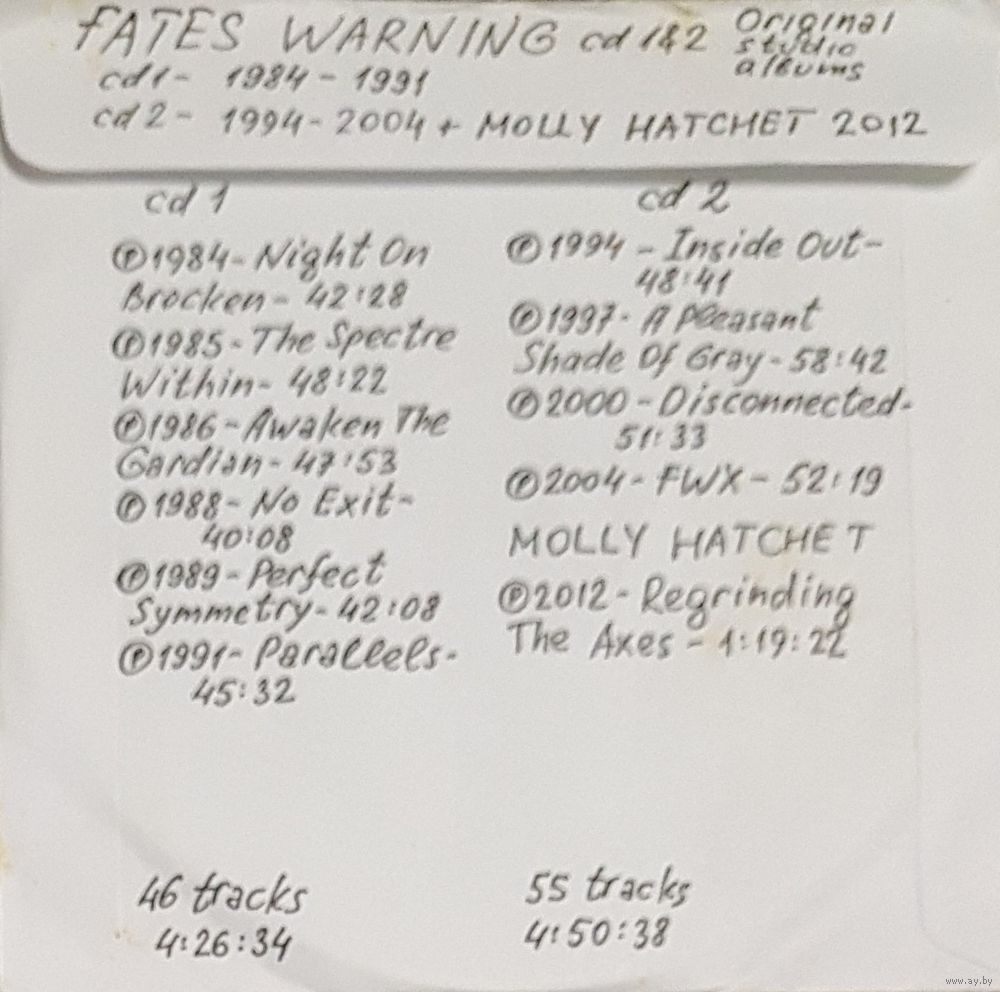 FATES WARNING cd 1&2 Original
studio
albums
cd1- 1984-1991
cd2- 1994-2004 + MOLLY HATCHET 2012
cd 1
℗1984-Night On
Brocken- 42:28
℗1985-The Spectre
Within- 48:22
℗1986-Awaken The
Gardian- 47:53
℗1988-No Exit-
40:08
℗1989-Perfect
Symmetry-42:08
℗1991-Parallels-
45:32
46 tracks
4:26:34
cd 2
℗1994-Inside Out-
48:41
℗1997-A Pleasant
Shade Of Gray-58:42
℗2000-Disconnected-
51:33
℗2004-FWX-52:19
MOLLY HATCHET
℗2012-Regrinding
The Axes-1:19:22
55 tracks
4:50:38
www.ay.by